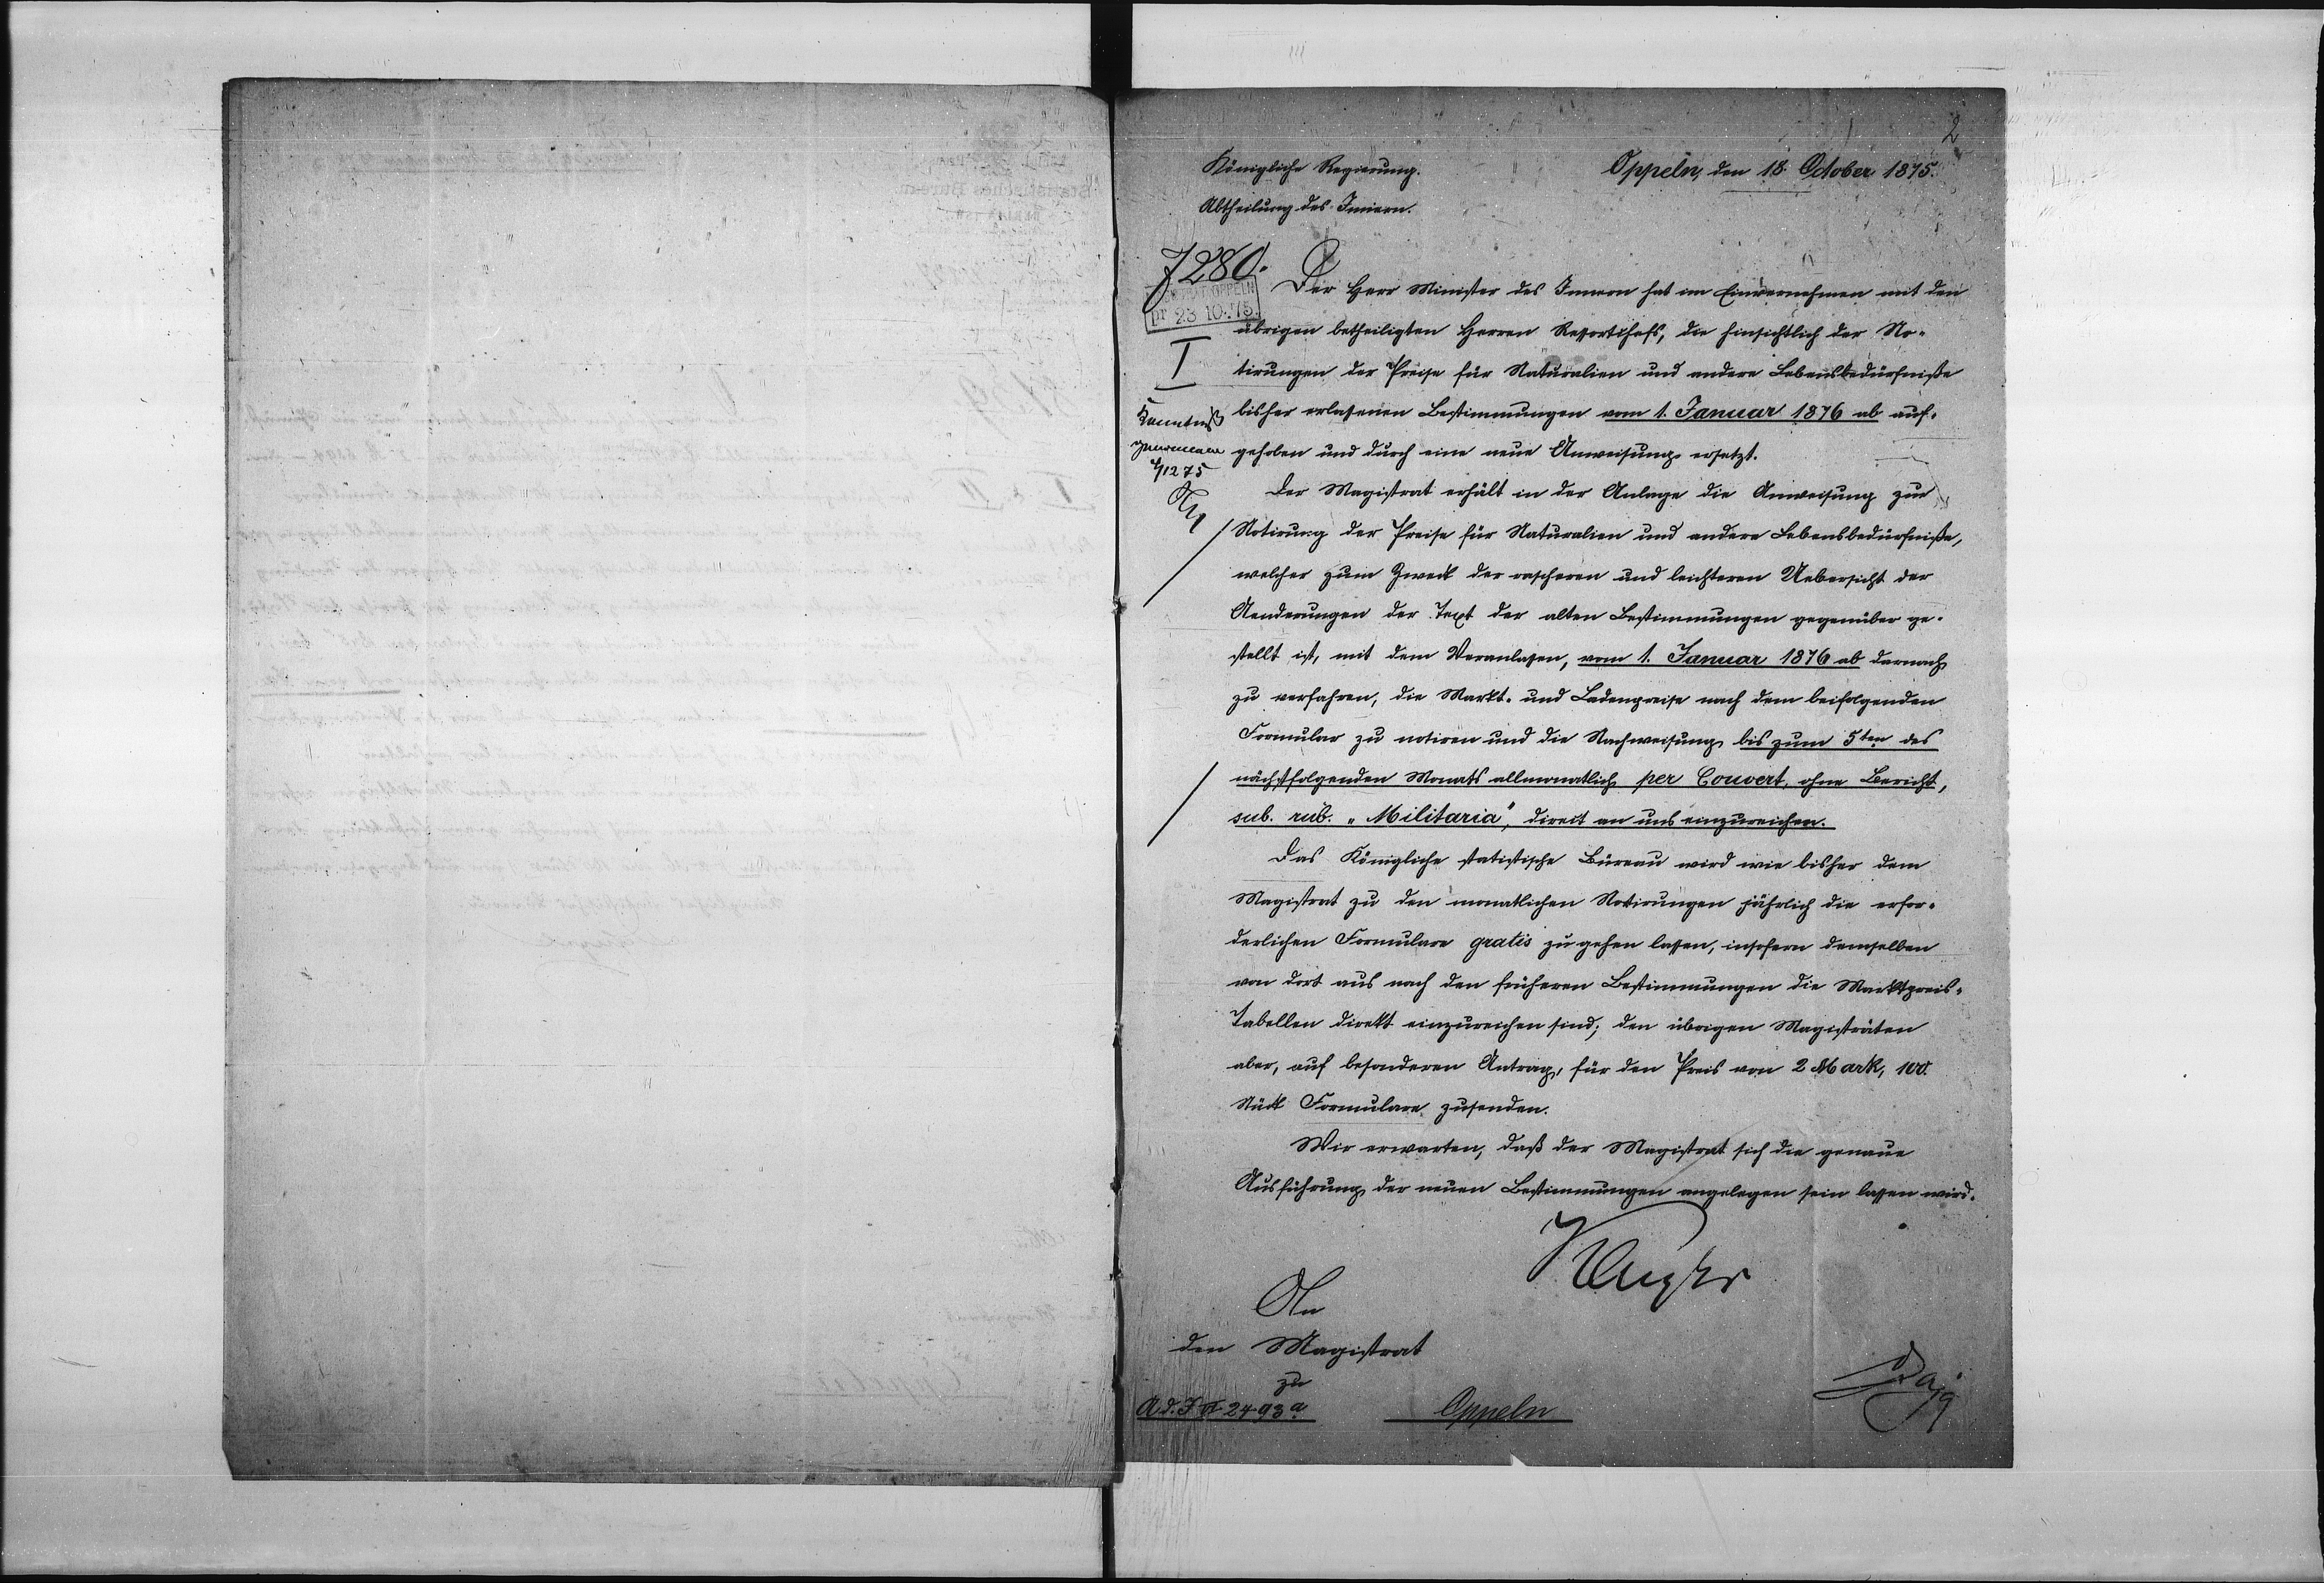 2
Königliche Regierung.
Oppeln, den 18. October 1875.
Abtheilung des Innern.
7280.
OPPELN
pr 23 10. 75.
I
Kenntniß
genommen
4/12 75
Der Herr Minister des Innern hat im Einvernehmen mit den
übrigen betheiligten Herren Ressortchefs, die hinsichtlich der No-
tirungen der Preise für Naturalien und andere Lebensbedürfniße
bisher erlassenen Bestimmungen vom 1. Januar 1876 ab auf-
gehoben und durch eine neue Anweisung ersetzt.
Der Magistrat erhält in der Anlage die Anweisung zur
Notirung der Preise für Naturalien und andere Lebensbedürfniße,
welcher zum Zweck der rascheren und leichteren Uebersicht der
Aenderungen der Text der alten Bestimmungen gegenüber ge-
stellt ist, mit dem Veranlassen, vom 1. Januar 1876 ab darnach
zu verfahren, die Markt- und Ladenpreise nach dem beifolgenden
Formular zu notiren und die Nachweisung bis zum 5ten des
nächstfolgenden Monats allmonatlich per Couvert, ohne Bericht,
sub. rub. „Militaria", direct an uns einzureichen.
Das Königliche statistische Büreau wird wie bisher dem
Magistrat zu den monatlichen Notirungen jährlich die erfor-
derlichen Formulare gratis zu gehen lassen, insofern demselben
von dort aus nach den früheren Bestimmungen die Marktpreis-
Tabellen direkt einzureichen sind; den übrigen Magisträten
aber, auf besonderen Antrag, für den Preis von 2 Mark, 100
Stück Formulare zusenden.
Wir erwarten, daß der Magistrat sich die genaue
Ausführung der neuen Bestimmungen angelegen sein lassen wird.
An
den Magistrat
zu
Oppeln
A d. I 2493 a